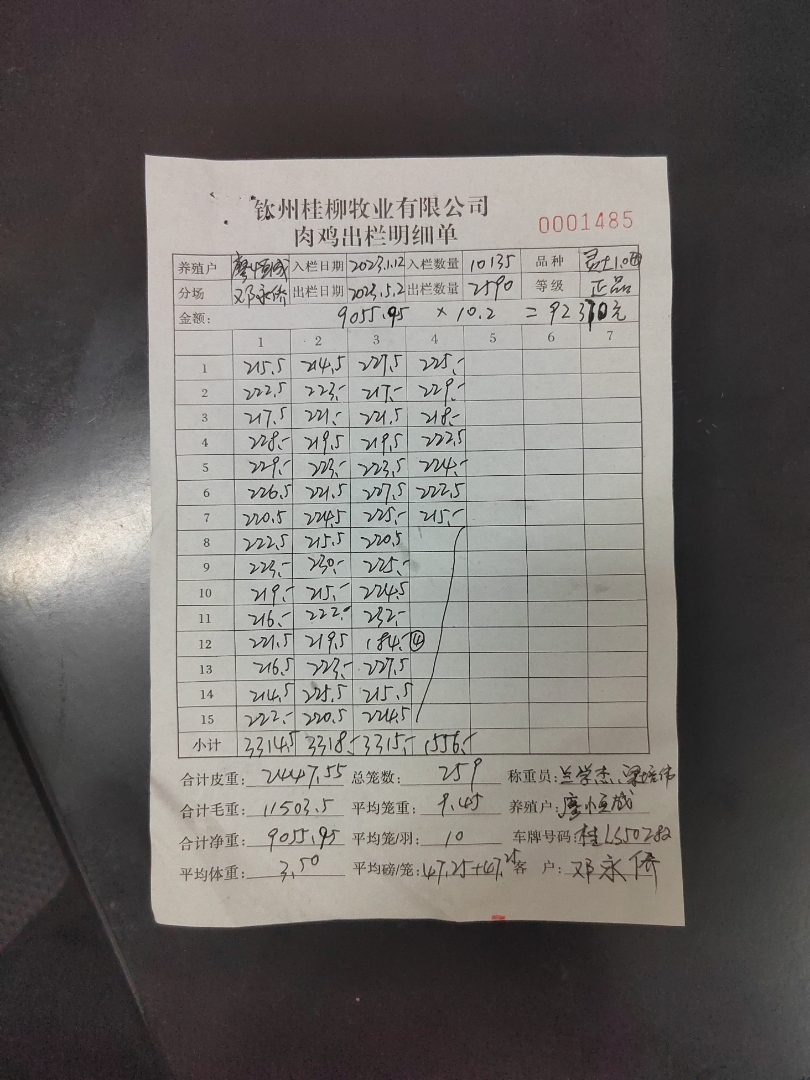 钦州桂柳牧业有限公司
0001485
肉鸡出栏明细单
养殖户 廖恒成 入栏日期 2023.1.12 入栏数量 10135 品种
分场 邓永侨 出栏日期 2023.5.2 出栏数量 2590 等级 正品
金额: 9055.95 × 10.2 = 92370元
1 2 3 4 5 6 7
1 215.5 214.5 227.5 225.-
2 222.5 223.- 217.- 229.-
3 217.5 221.- 221.5 218.-
4 228.- 219.5 219.5 222.5
5 229.- 223.- 223.5 224.-
6 226.5 221.5 227.5 222.5
7 220.5 224.5 225.- 215.-
8 222.5 215.5 220.5
9 223.- 230.- 225.-
10 219.- 215.- 224.5
11 216.- 222.- 232.-
12 221.5 219.5 184.- ④
13 216.5 223.- 227.5
14 214.5 225.5 215.5
15 222.- 220.5 224.5
小计 3314.5 3318.- 3315.- 1556.-
合计皮重: 2447.55 总笼数: 259 称重员: 兰学杰、梁培伟
合计毛重: 11503.5 平均笼重: 9.45 养殖户: 廖恒成
合计净重: 9055.95 平均笼/羽: 10 车牌号码: 桂LS50282
平均体重: 3.50 平均磅/笼: 47.25+47.25 客 户: 邓永侨